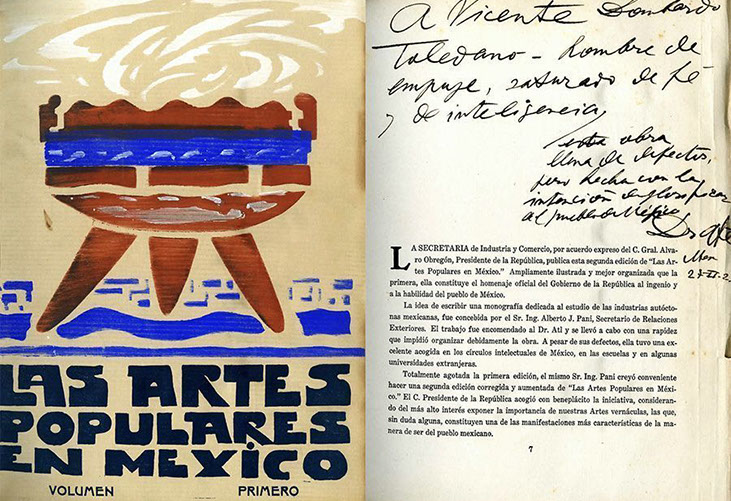 LAS ARTES
POPULARES
EN MEXICO
VOLUMEN PRIMERO
A Vicente Lombardo
Toledano – hombre de
empuje, saturado de fé
y de inteligencia,
esta obra
llena de defectos,
pero hecha con la
intención de glorificar
al pueblo de México
LA SECRETARIA de Industria y Comercio, por acuerdo expreso del C. Gral. Alva-
ro Obregón, Presidente de la República, publica esta segunda edición de "Las Ar-
tes Populares en México." Ampliamente ilustrada y mejor organizada que la
primera, ella constituye el homenaje oficial del Gobierno de la República al ingenio y
a la habilidad del pueblo de México.
La idea de escribir una monografía dedicada al estudio de las industrias autócto-
nas mexicanas, fue concebida por el Sr. Ing. Alberto J. Pani, Secretario de Relaciones
Exteriores. El trabajo fue encomendado al Dr. Atl y se llevó a cabo con una rapidez
que impidió organizar debidamente la obra. A pesar de sus defectos, ella tuvo una ex-
celente acogida en los círculos intelectuales de México, en las escuelas y en algunas
universidades extranjeras.
Totalmente agotada la primera edición, el mismo Sr. Ing. Pani creyó conveniente
hacer una segunda edición corregida y aumentada de "Las Artes Populares en Méxi-
co." El C. Presidente de la República acogió con beneplácito la iniciativa, consideran-
do del más alto interés exponer la importancia de nuestras Artes vernáculas, las que,
sin duda alguna, constituyen una de las manifestaciones más características de la ma-
nera de ser del pueblo mexicano.
7